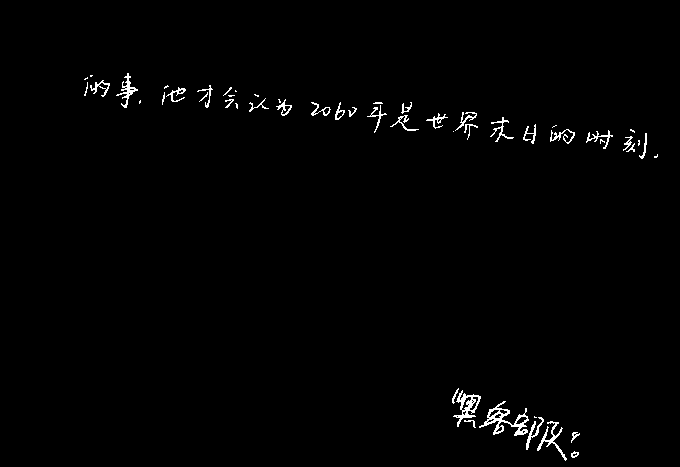 的事.他才会认为2060年是世界末日的时刻.
"黑客部队: